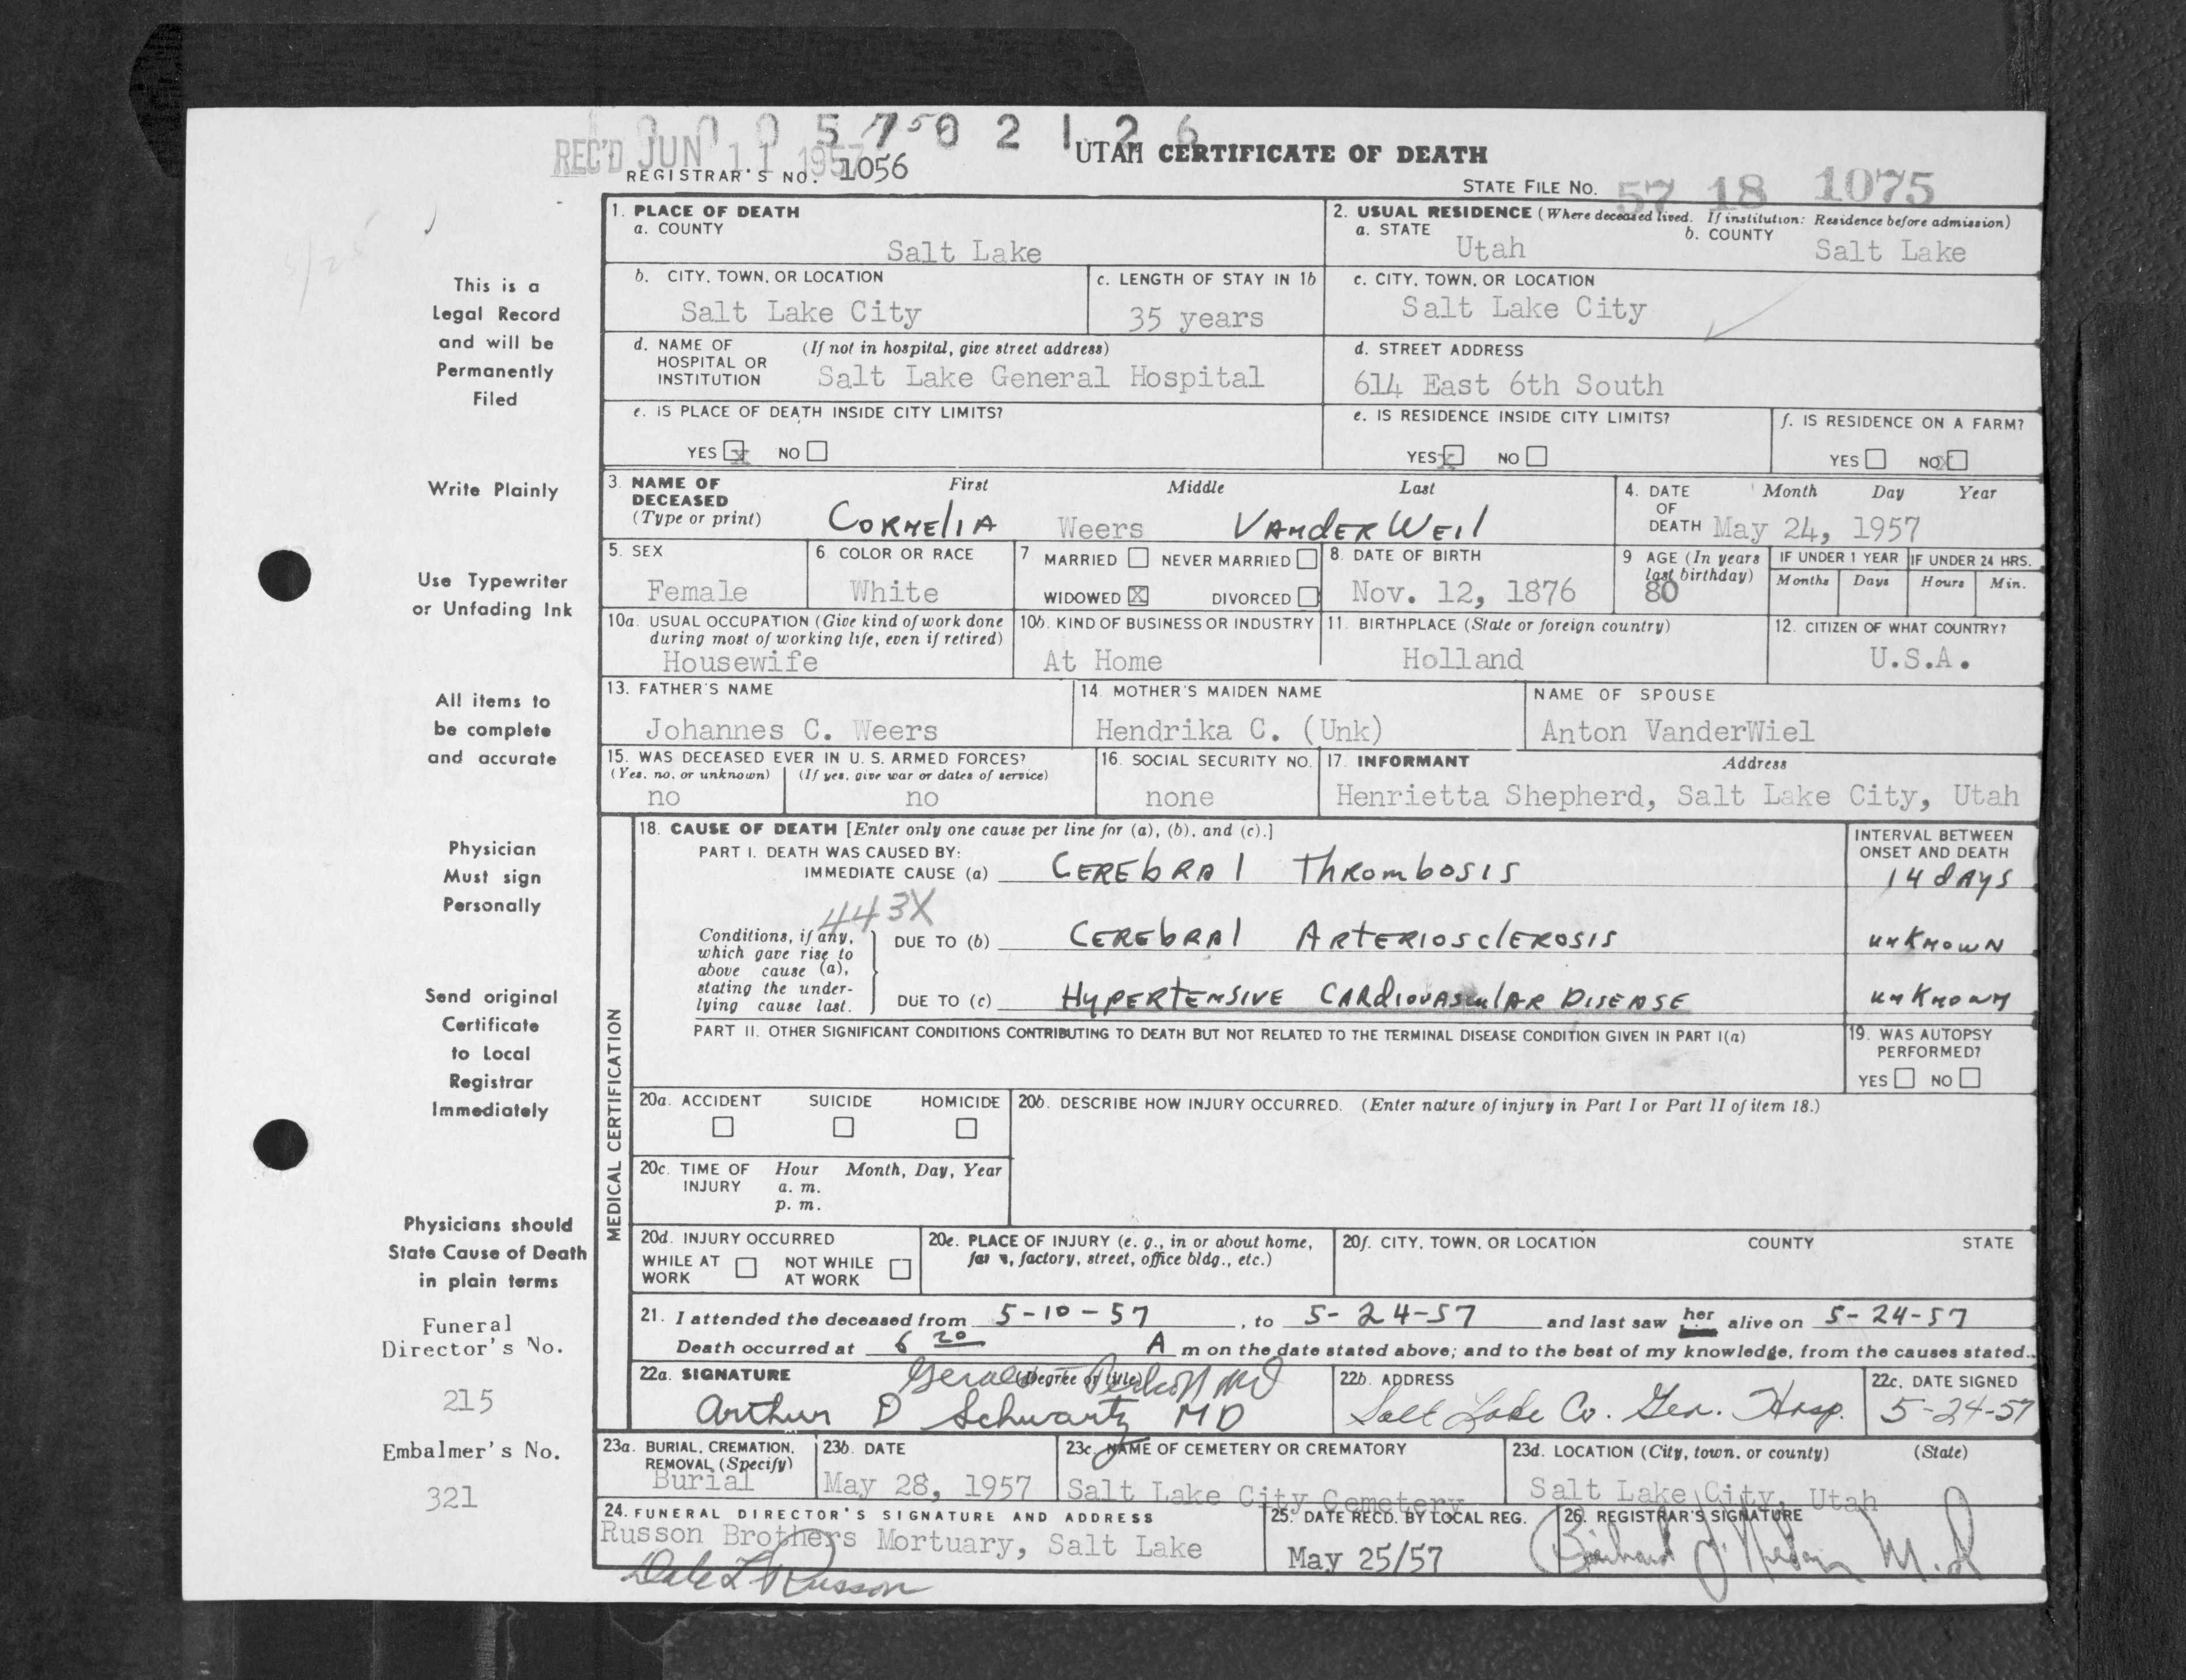 0 0 0 5 7 50 2 1 2 6
REC'D JUN 11 1957
UTAH CERTIFICATE OF DEATH
REGISTRAR'S NO. 1056
STATE FILE NO. 57 18 1075
This is a
Legal Record
and will be
Permanently
Filed
Write Plainly
Use Typewriter
or Unfading Ink
All items to
be complete
and accurate
Physician
Must sign
Personally
Send original
Certificate
to Local
Registrar
Immediately
Physicians should
State Cause of Death
in plain terms
Funeral
Director's No.
215
Embalmer's No.
321
1. PLACE OF DEATH
a. COUNTY
Salt Lake
2. USUAL RESIDENCE (Where deceased lived. If institution: Residence before admission)
a. STATE Utah b. COUNTY Salt Lake
b. CITY, TOWN, OR LOCATION
Salt Lake City
c. LENGTH OF STAY IN 1b
35 years
c. CITY, TOWN, OR LOCATION
Salt Lake City
d. NAME OF HOSPITAL OR INSTITUTION (If not in hospital, give street address)
Salt Lake General Hospital
d. STREET ADDRESS
614 East 6th South
e. IS PLACE OF DEATH INSIDE CITY LIMITS?
YES x NO
e. IS RESIDENCE INSIDE CITY LIMITS?
YES x NO
f. IS RESIDENCE ON A FARM?
YES NO x
3. NAME OF DECEASED (Type or print)
First Middle Last
CORNELIA Weers VANDERWEIL
4. DATE OF DEATH Month Day Year
May 24, 1957
5. SEX
Female
6. COLOR OR RACE
White
7. MARRIED NEVER MARRIED
WIDOWED X DIVORCED
8. DATE OF BIRTH
Nov. 12, 1876
9 AGE (In years last birthday)
80
IF UNDER 1 YEAR
Months Days
IF UNDER 24 HRS.
Hours Min.
10a. USUAL OCCUPATION (Give kind of work done during most of working life, even if retired)
Housewife
10b. KIND OF BUSINESS OR INDUSTRY
At Home
11. BIRTHPLACE (State or foreign country)
Holland
12. CITIZEN OF WHAT COUNTRY?
U.S.A.
13. FATHER'S NAME
Johannes C. Weers
14. MOTHER'S MAIDEN NAME
Hendrika C. (Unk)
NAME OF SPOUSE
Anton VanderWiel
15. WAS DECEASED EVER IN U. S. ARMED FORCES?
(Yes, no, or unknown) (If yes, give war or dates of service)
no no
16. SOCIAL SECURITY NO.
none
17. INFORMANT Address
Henrietta Shepherd, Salt Lake City, Utah
MEDICAL CERTIFICATION
18. CAUSE OF DEATH [Enter only one cause per line for (a), (b), and (c).]
INTERVAL BETWEEN ONSET AND DEATH
PART I. DEATH WAS CAUSED BY:
IMMEDIATE CAUSE (a) CEREBRAL THROMBOSIS 14 DAYS
443X
Conditions, if any, which gave rise to above cause (a), stating the underlying cause last.
DUE TO (b) CEREBRAL ARTERIOSCLEROSIS UNKNOWN
DUE TO (c) HYPERTENSIVE CARDIOVASCULAR DISEASE UNKNOWN
PART II. OTHER SIGNIFICANT CONDITIONS CONTRIBUTING TO DEATH BUT NOT RELATED TO THE TERMINAL DISEASE CONDITION GIVEN IN PART I(a)
19. WAS AUTOPSY PERFORMED?
YES NO
20a. ACCIDENT SUICIDE HOMICIDE
20b. DESCRIBE HOW INJURY OCCURRED. (Enter nature of injury in Part I or Part II of item 18.)
20c. TIME OF INJURY Hour Month, Day, Year
a. m.
p. m.
20d. INJURY OCCURRED
WHILE AT WORK NOT WHILE AT WORK
20e. PLACE OF INJURY (e. g., in or about home, farm, factory, street, office bldg., etc.)
20f. CITY, TOWN, OR LOCATION COUNTY STATE
21. I attended the deceased from 5-10-57, to 5-24-57 and last saw her alive on 5-24-57
Death occurred at 6 20 A m on the date stated above; and to the best of my knowledge, from the causes stated.
22a. SIGNATURE (Degree or title)
Gerald Perkoff MD
Arthur D Schwartz MD
22b. ADDRESS
Salt Lake Co. Gen. Hosp.
22c. DATE SIGNED
5-24-57
23a. BURIAL, CREMATION, REMOVAL (Specify)
Burial
23b. DATE
May 28, 1957
23c. NAME OF CEMETERY OR CREMATORY
Salt Lake City Cemetery
23d. LOCATION (City, town, or county) (State)
Salt Lake City, Utah
24. FUNERAL DIRECTOR'S SIGNATURE AND ADDRESS
Russon Brothers Mortuary, Salt Lake
Dale L Russon
25. DATE RECD. BY LOCAL REG.
May 25/57
26. REGISTRAR'S SIGNATURE
M.D